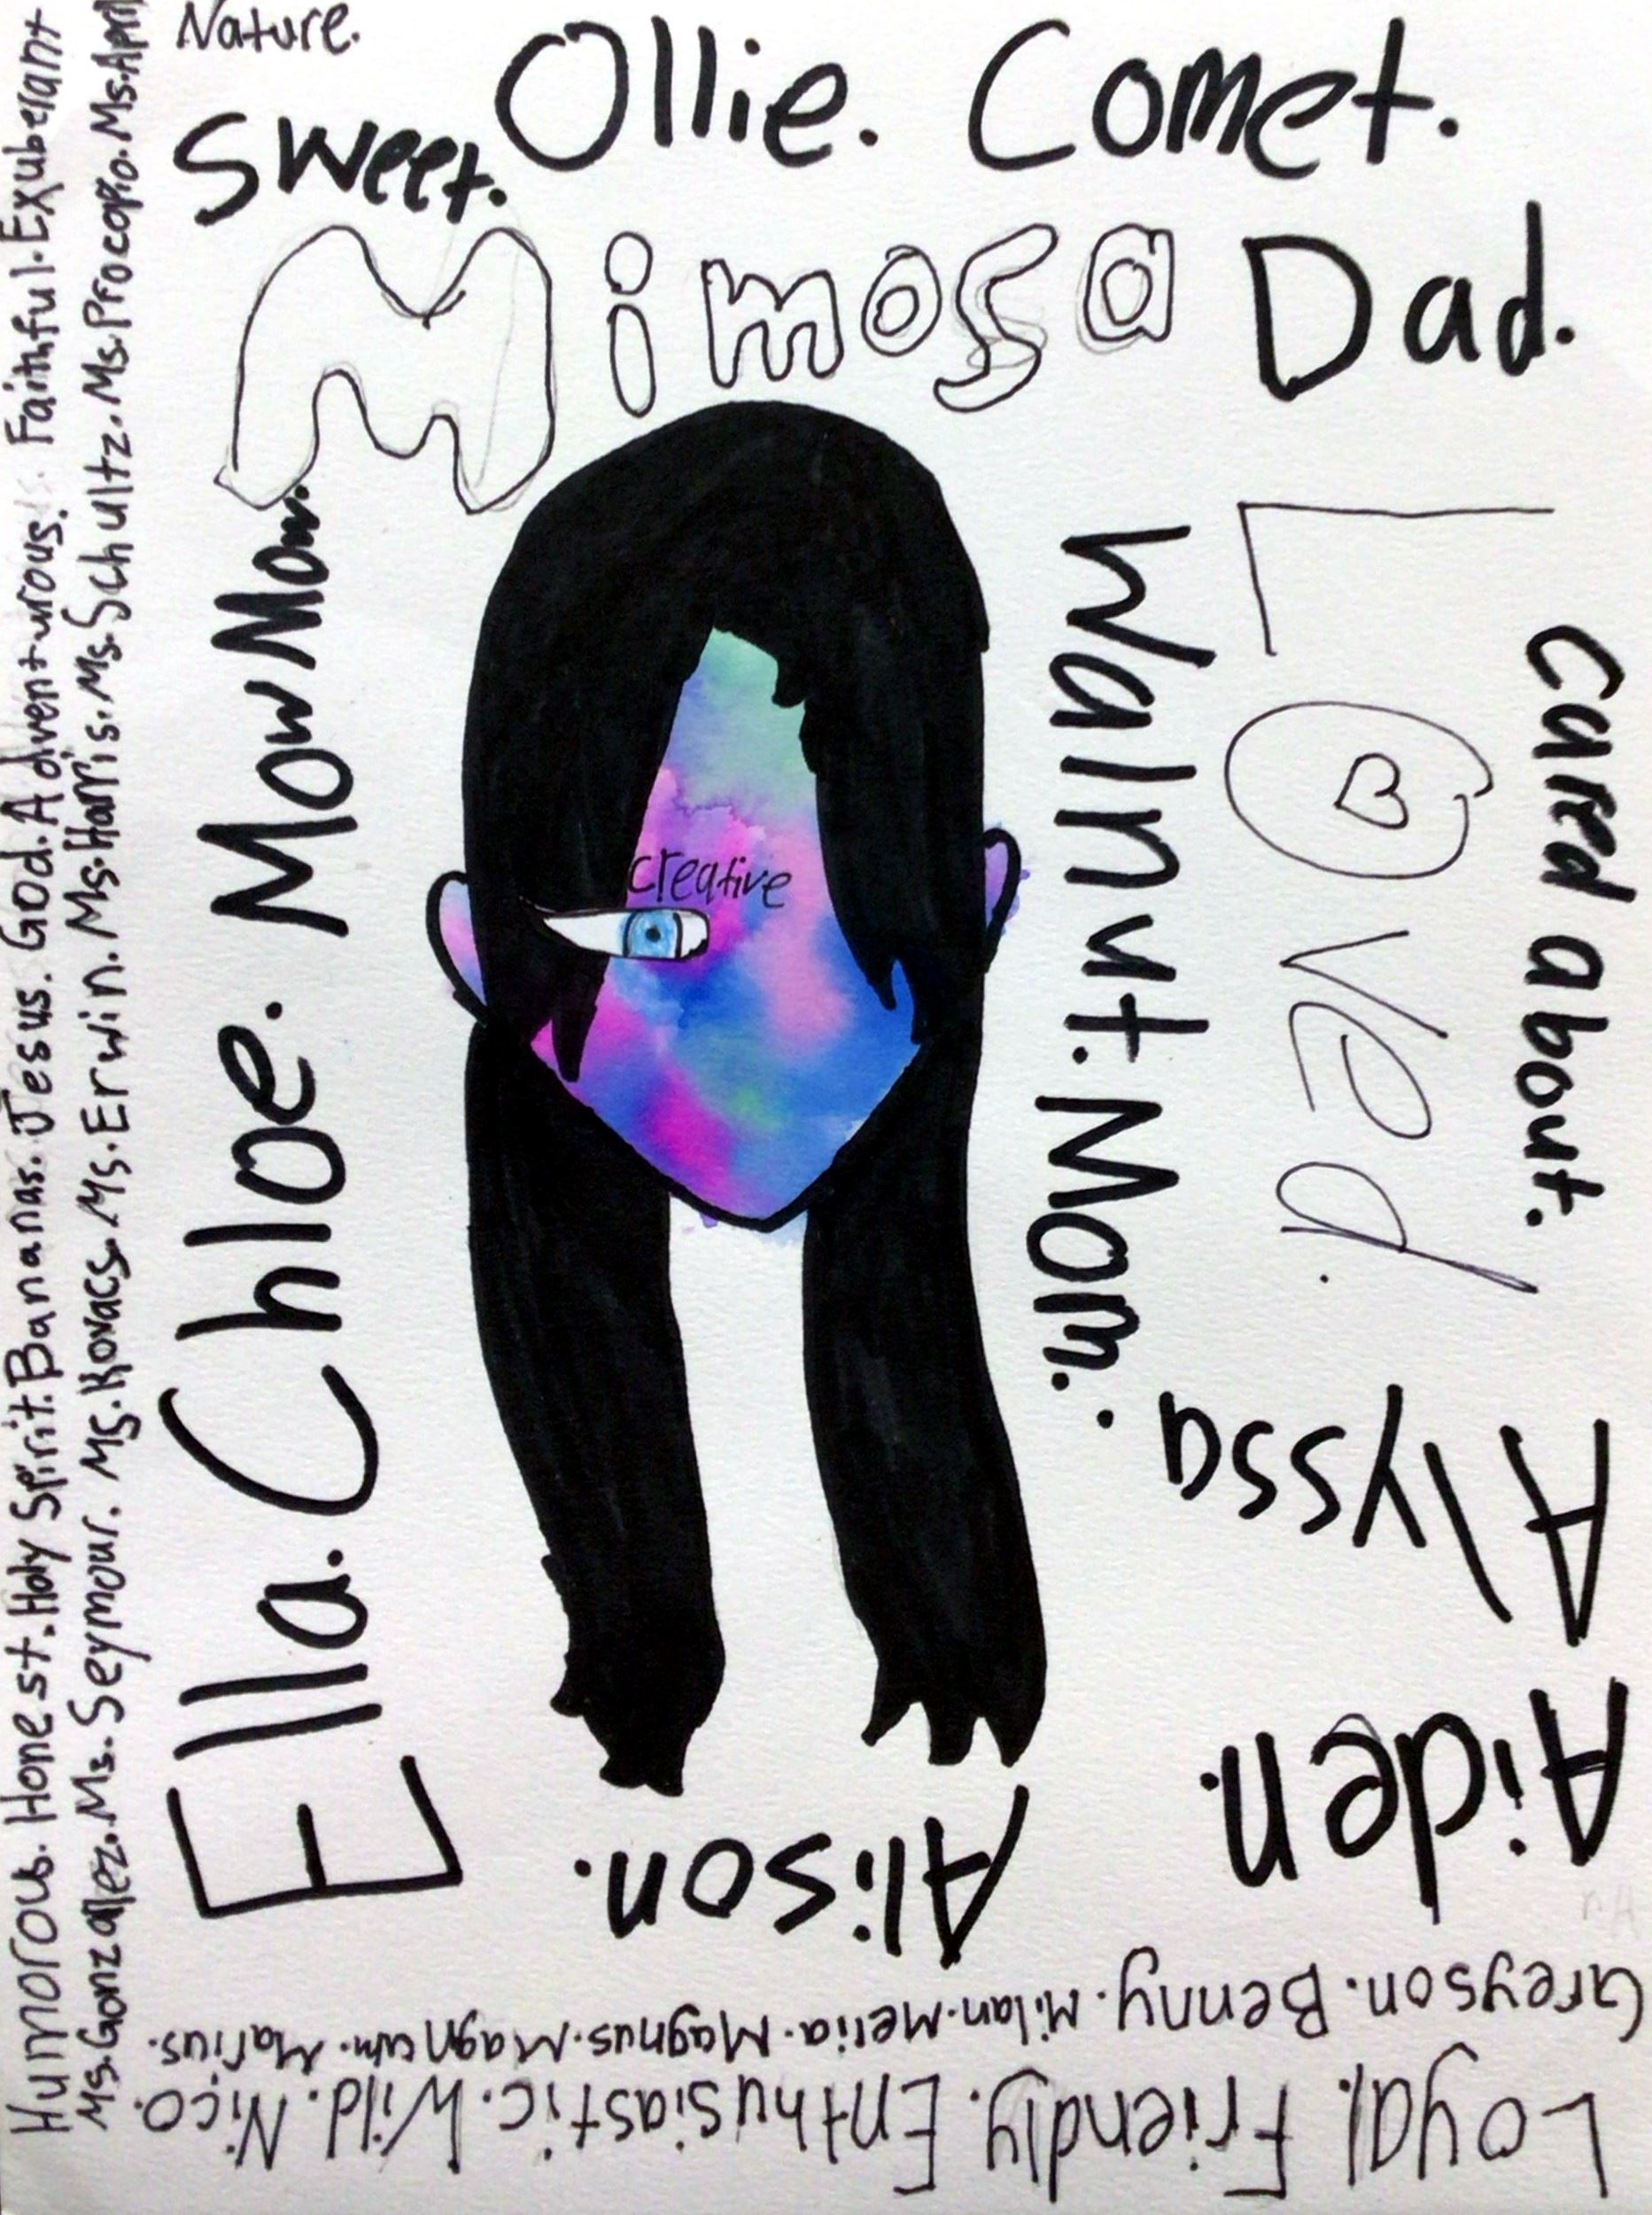 Nature.
Ollie. Comet.
Sweet.
Mimosa
Dad.
creative
Walnut. Mom.
Loved.
Cared about.
Alyssa
Aiden.
Alison.
Greyson. Benny. Milan. Melia. Magnus. Magnum. Marius.
Loyal. Friendly. Enthusiastic. Wild. Nico.
Ella. Chloe. MowMow.
Humorous. Honest. Holy Spirit. Bananas. Jesus. God. Adventurous. Faithful. Exuberant
Ms. Gonzallez. Ms. Seymour. Ms. Kovacs. Ms. Erwin. Ms. Harris. Ms. Schultz. Ms. Procopio. Ms. April